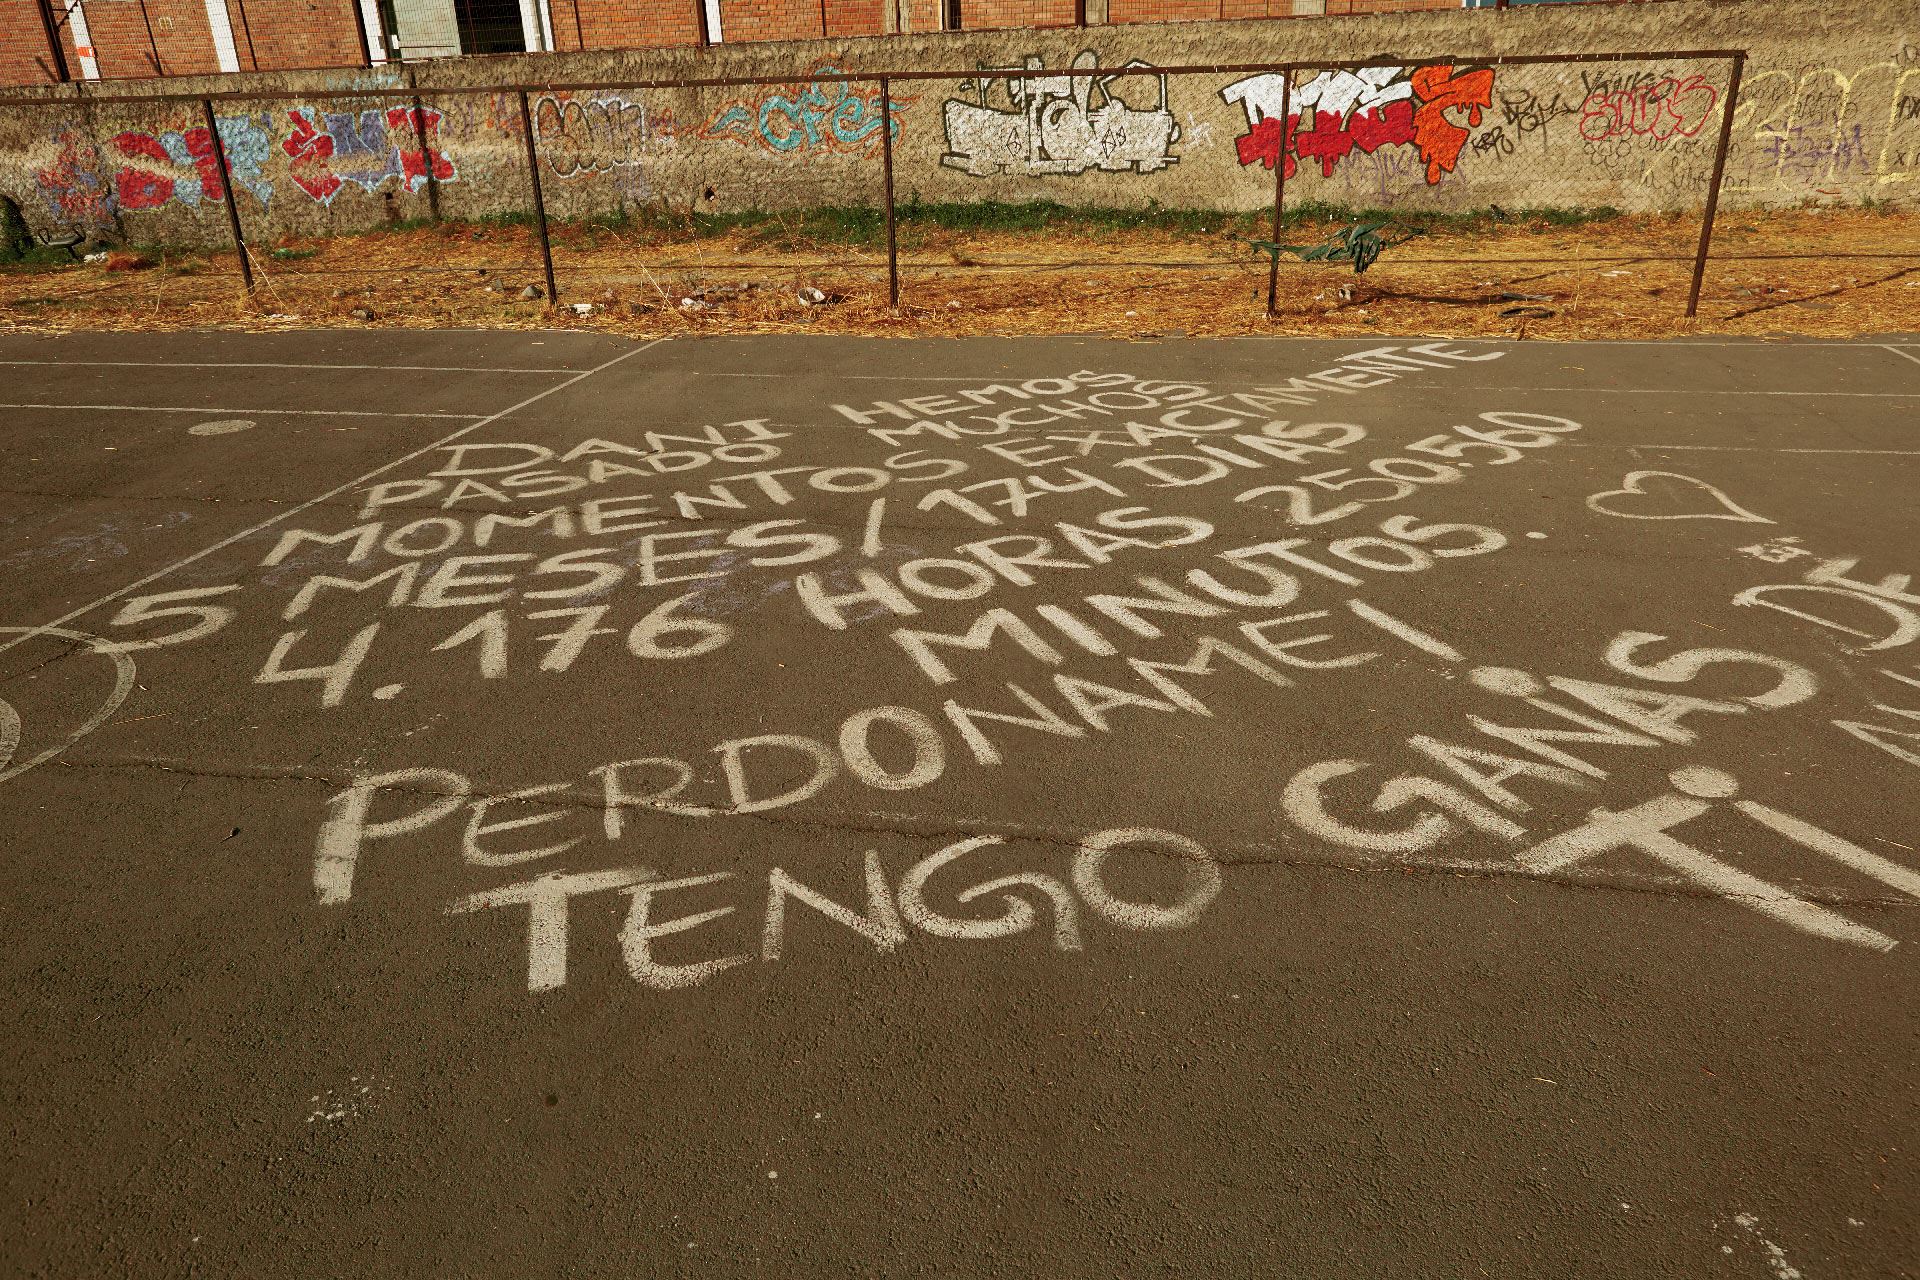 DANI HEMOS
PASADO MUCHOS
MOMENTOS EXACTAMENTE
5 MESES / 174 DIAS
4.176 HORAS 250.560
MINUTOS.
PERDONAME!
TENGO GANAS DE
TI